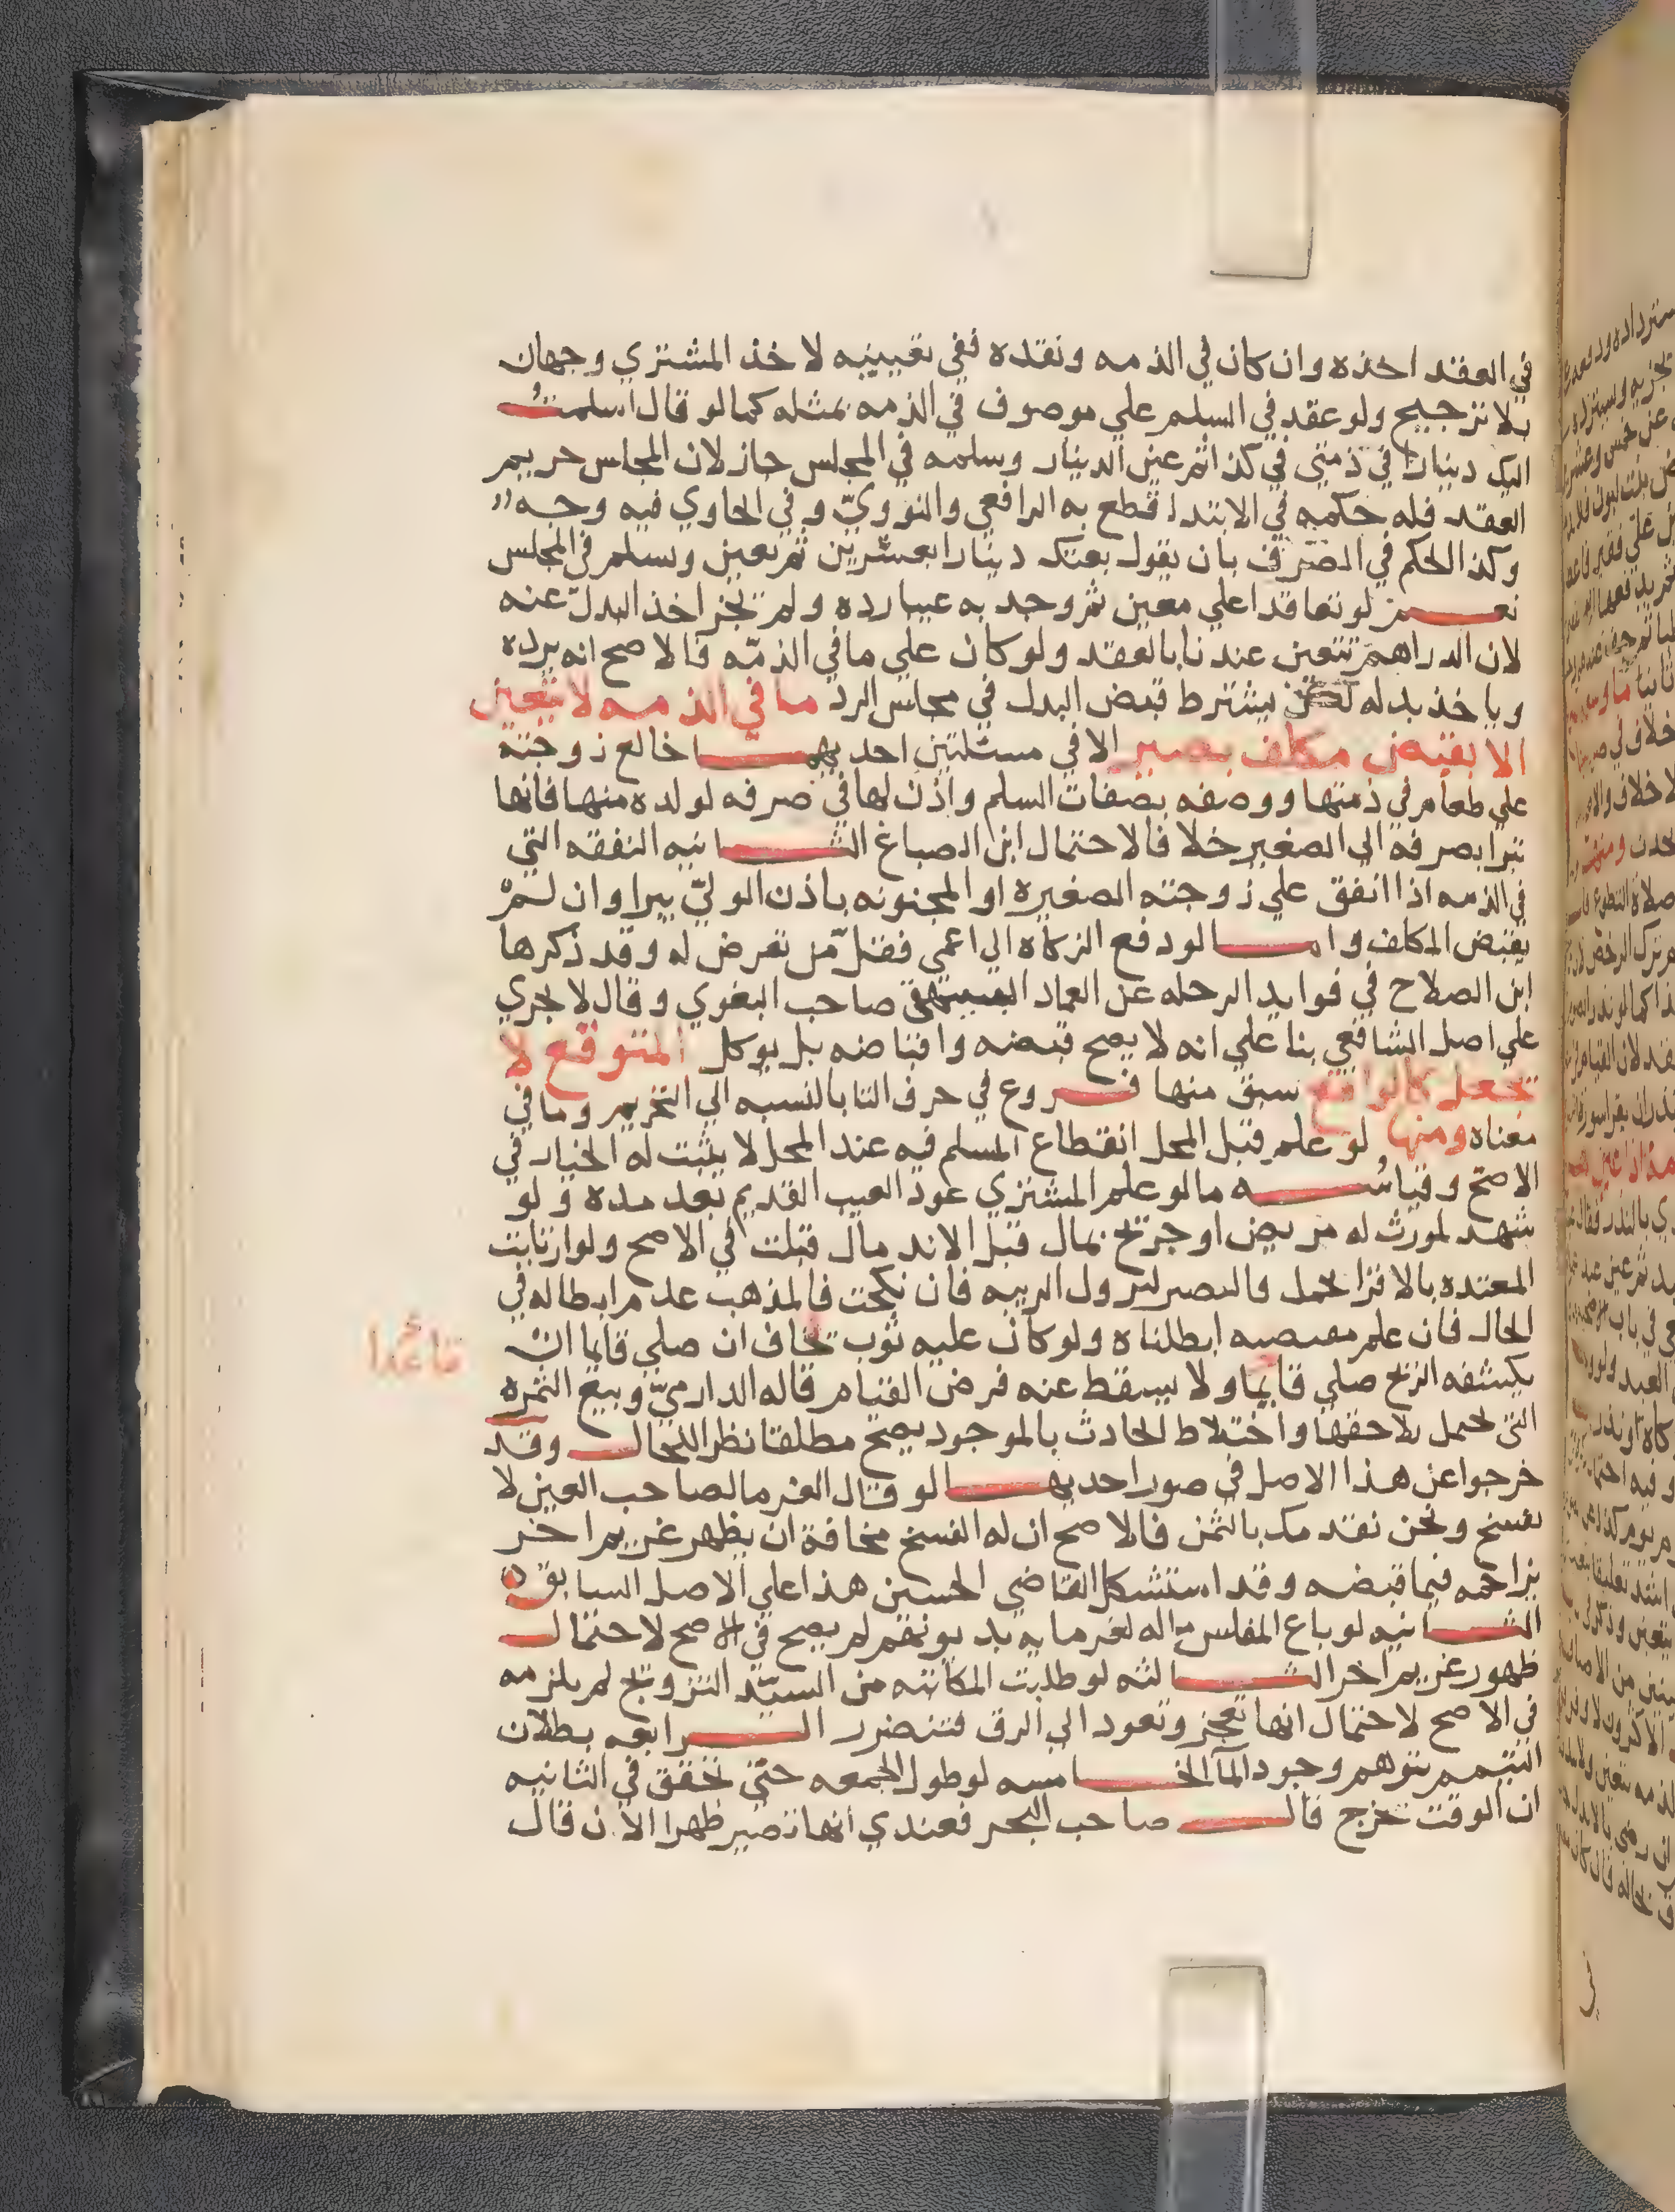 في العقد اخذه وان كان في الذمه ونقده ففي تعيينه لاخذ المشتري وجهان
بلا ترجيح ولو عقد في السلم علي موصوف في الذمه بمثله كما لو قال اسلمت
اليك دينارا في ذمتي في كذا ثم عين الدينار وسلمه في المجلس جاز لان المجلس حريم
العقد فله حكمه في الابتدا قطع به الرافعي والنووي وفي الحاوي فيه وجه
وكذا الحكم في الصرف بان يقول بعتك دينارا بعشرين ثم يعين ويسلم في المجلس
نعم لو تعاقدا علي معين ثم وجد به عيبا رده ولم يجز اخذ البدل عنه
لان الدراهم تتعين عندنا بالعقد ولو كان علي ما في الذمه فالاصح انه يرده
وياخذ بدله لكن يشترط قبض البدل في مجلس الرد ما في الذمه لا يتعين
الا بقبض مكلف بصير الا في مسئلتين احديهما خالع زوجته
علي طعام في ذمتها ووصفه بصفات السلم واذن لها في صرفه لولده منها فانها
تبرا بصرفه الي الصغير خلافا لاحتمال ابن الصباغ الثانيه النفقه التي
في الذمه اذا انفق علي زوجته الصغيره او المجنونه باذن الولي يبرا وان لم
يقبض المكلف واما لو دفع الزكاه الي اعمي فقل من تعرض له وقد ذكرها
ابن الصلاح في فوايد الرحله عن العماد صاحب البغوي وقال لا يجري
علي اصل الشافعي بنا علي انه لا يصح قبضه واقباضه بل يوكل المتوقع لا
يجعل كالواقع سبق منها فروع في حرف التا بالنسبه الي التحريم وما في
معناه ومنها لو علم قبل المحل انقطاع المسلم فيه عند المحل لا يثبت له الخيار في
الاصح وقياسه ما لو علم المشتري عود العيب القديم بعد مده ولو
شهد لمورث له مريض او جريح بمال قبل الاندمال قبلت في الاصح ولو ارتابت
المعتده بالاقرا لحمل فالتصبر لتزول الريبه فان نكحت فالمذهب عدم ابطاله في
الحال فان علم مقتضيه ابطلناه ولو كان عليه ثوب يخاف ان صلي قايما ان
قاعدا
يكشفه الريح صلي قايما ولا يسقط عنه فرض القيام قاله الدارمي وبيع الثمره
التي يحتمل تلاحقها واختلاط الحادث بالموجود يصح مطلقا نظرا للحال وقد
خرجوا عن هذا الاصل في صور احديها لو قال الغرما لصاحب العين لا
تفسخ ونحن نقدمك بالثمن فالاصح ان له الفسخ مخافة ان يظهر غريم اخر
يزاحمه فيما قبضه وقد استشكل القاضي الحسين هذا علي الاصل السابق
الثانيه لو باع المفلس ماله لغرمايه بديونهم لم يصح في الاصح لاحتمال
ظهور غريم اخر الثالثه لو طلبت المكاتبه من السيد التزويج لم يلزمه
في الاصح لاحتمال انها تعجز وتعود الي الرق فتتضرر الرابعه بطلان
التيمم بتوهم وجود الما الخامسه لو طول الجمعه حتي تحقق في الثانيه
ان الوقت خرج قال صاحب البحر فعندي انها تصير ظهرا الان قال